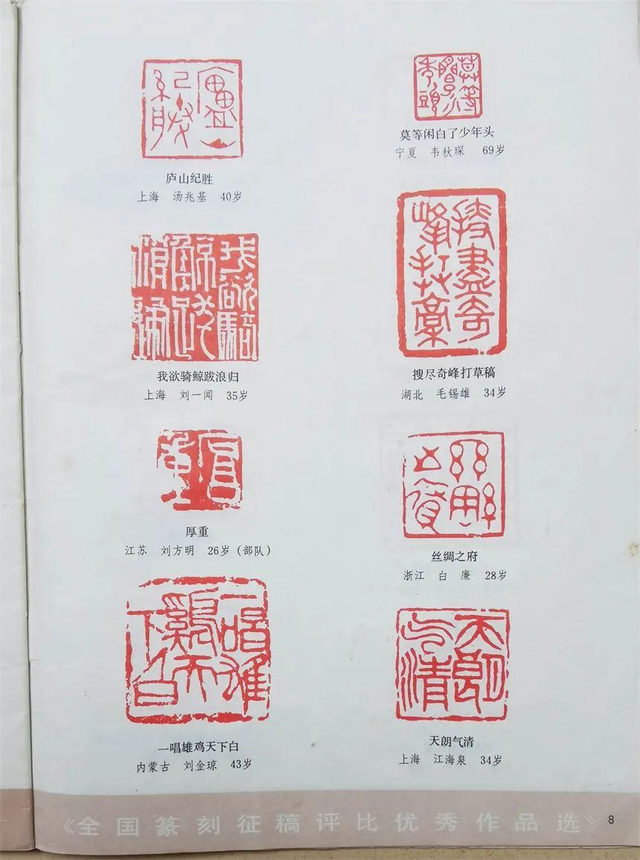 庐山纪胜
上海 汤兆基 40岁
莫等闲白了少年头
宁夏 韦秋琛 69岁
我欲骑鲸跋浪归
上海 刘一闻 35岁
搜尽奇峰打草稿
湖北 毛锡雄 34岁
厚重
江苏 刘方明 26岁(部队)
丝绸之府
浙江 白 廉 28岁
一唱雄鸡天下白
内蒙古 刘金琼 43岁
天朗气清
上海 江海泉 34岁
《全国篆刻征稿评比优秀作品选》
8